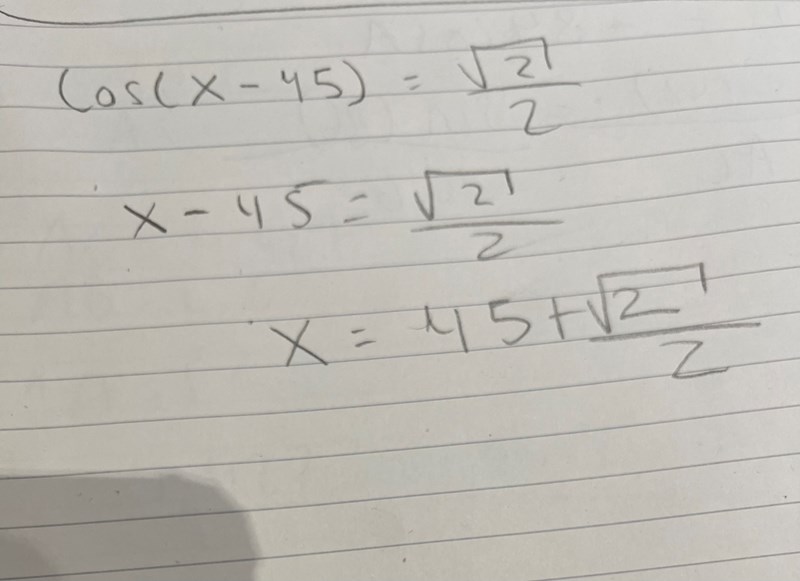 cos(x-45) = √2/2
x - 45 = √2/2
x = 45 + √2/2